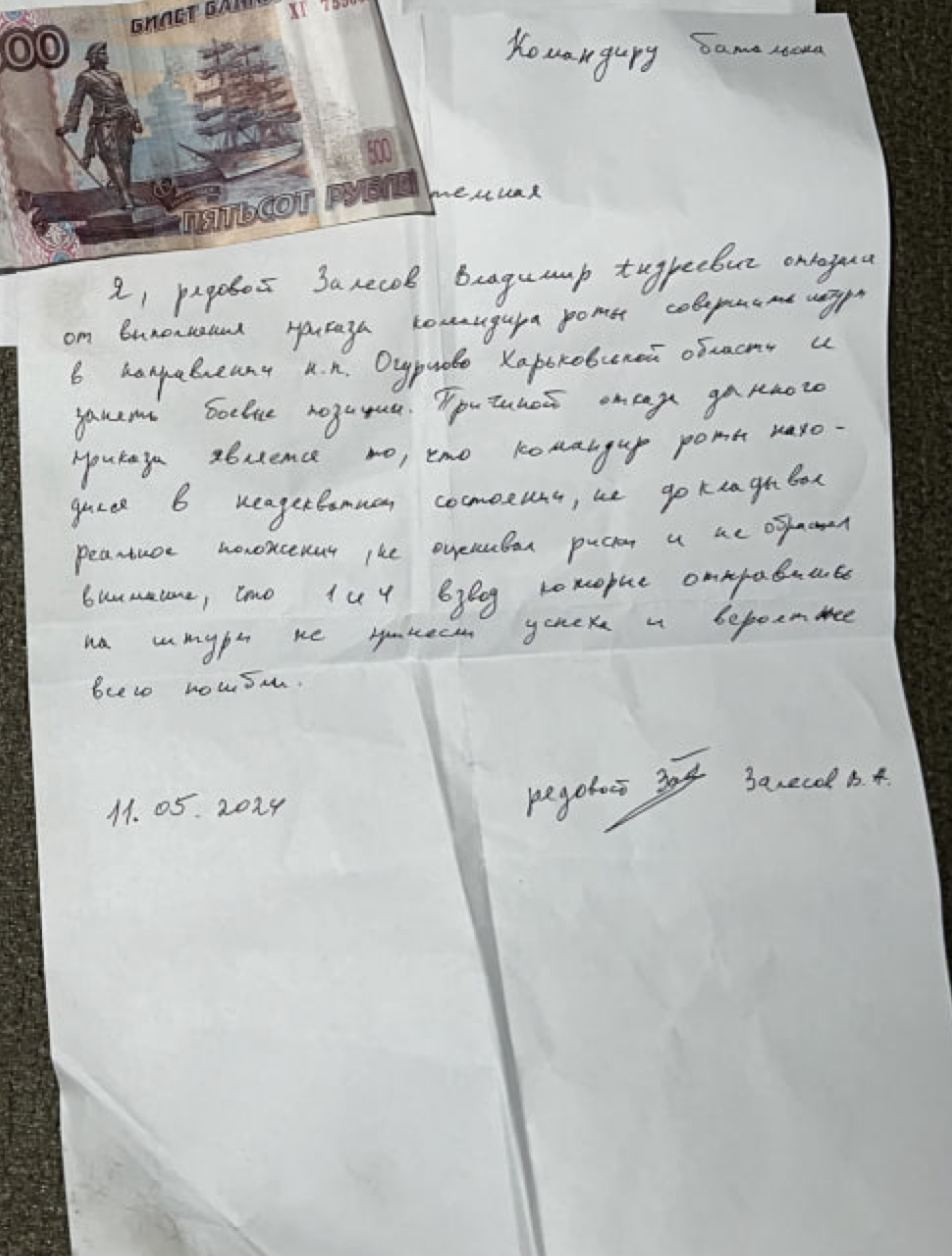 00
БИЛЕТ БАН
ХГ
500
ПЯТЬСОТ РУБЛЕ
Командиру батальона
темная
Я, рядовой Залесов Владимир Андреевич отказался
от выполнения приказа командира роты совершить штурм
в направлении н.п. Огурцово Харьковской области и
занять боевые позиции. Причиной отказа данного
приказа является то, что командир роты нахо-
дился в неадекватном состоянии, не докладывал
реальное положении, не оценивал риски и не обращал
внимание, что 1 и 4 взвод которые отправились
на штурм не принесли успеха и вероятнее
всего погибли.
11.05.2024
рядовой Залесов В.А.